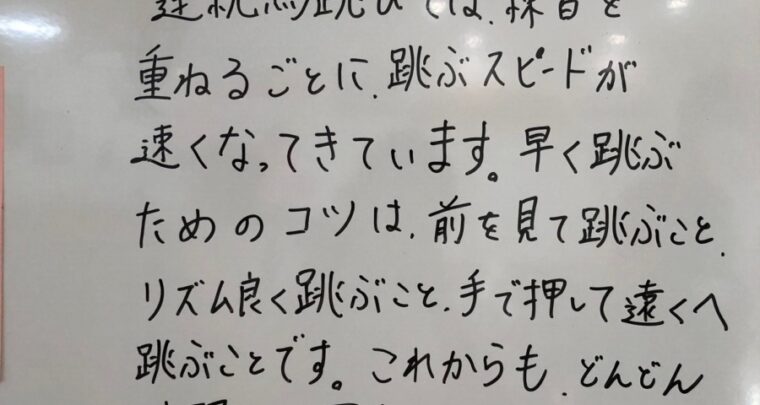 連続馬跳びでは、練習を
重ねるごとに、跳ぶスピードが
速くなってきています。早く跳ぶ
ためのコツは、前を見て跳ぶこと、
リズム良く跳ぶこと、手で押して遠くへ
跳ぶことです。これからも、どんどん